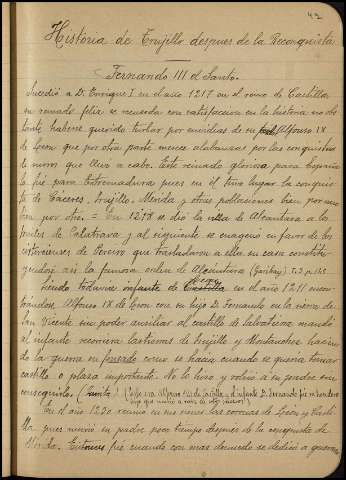 42
Historia de Trujillo despues de la Reconquista
Fernando III el Santo.
Sucedió a D. Enrique I en el año 1217 en el reino de Castilla
su reinado feliz se recuerda con satisfaccion en la historia no obs
tante haberse querido turbar por envidias de su Alfonso IX
de Leon que por otra parte merece alabanzas por las conquistas
de moros que llevó a cabo. Este reinado glorioso para España
lo fué para Extremadura pues en él tuvo lugar la conquis
ta de Cáceres, Trujillo, Mérida y otras poblaciones bien por uno
bien por otro. = En 1218 se dió la villa de Alcantara a los
de Calatrava y al siguiente se enagenó en favor de los
de Pereiro que trasladaron a ella su casa constitu
yendose asi la famosa orden de Alcantara (Garibay) T.2. p. 163
Siendo todavia infante de Castilla en el año 1211 encon
trandose Alfonso IX de Leon con su hijo D. Fernando en la sierra de
San Vicente sin poder auxiliar al castillo de Salvatierra mandó
al infante recorriera las tierras de Trujillo y Montanchez hacien
do la guerra en como se hacia cuando se queria tomar
castillo o plaza importante. No lo tuvo y volvió a su padre sin
conseguirlo.
que murió a raiz de
En el año 1230 reunió en sus sienes las coronas de León y Casti
lla pues murió su padre poco tiempo despues de la conquista de
Mérida. Entonces fué cuando con mas denuedo se dedicó a guerrear